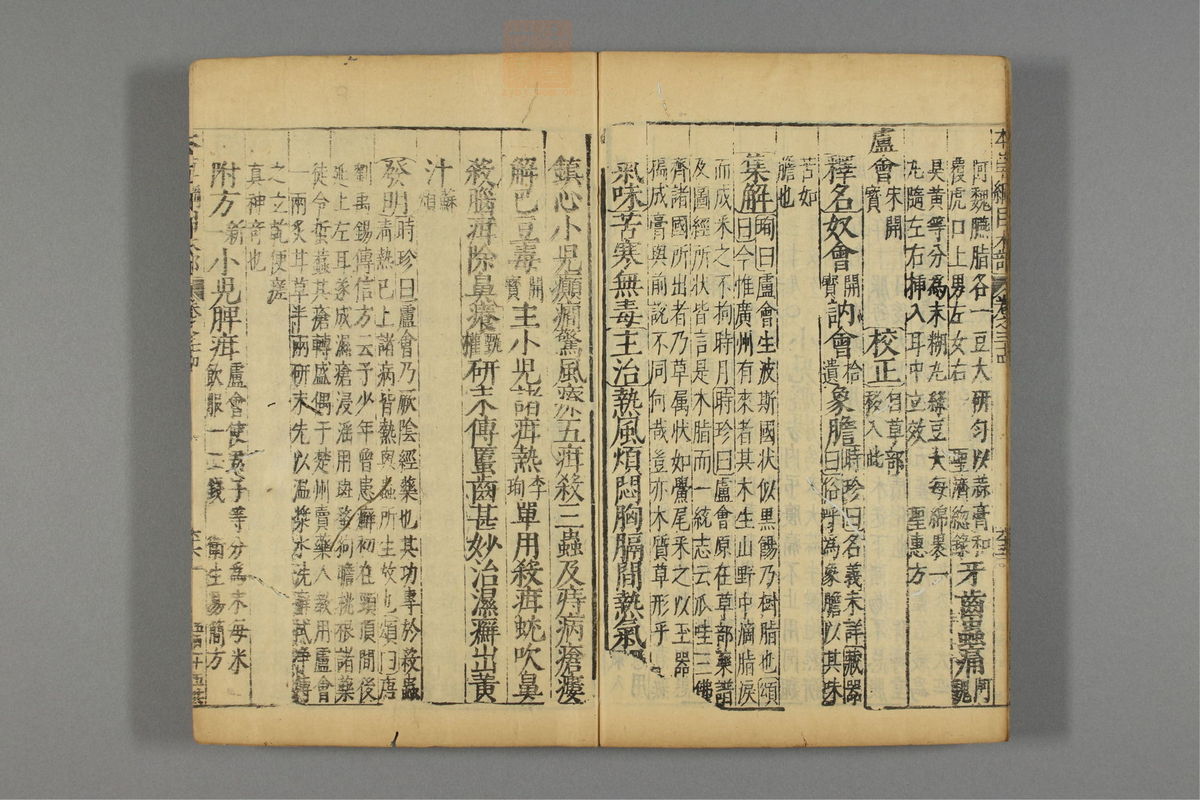 阿魏臙脂各一豆大研勻以蒜膏和
覆虎口上男左女右 聖濟總錄 牙齒蟲痛 阿魏
臭黃等分爲末糊丸綠豆大每綿裹一
丸隨左右揷入耳中立效 聖惠方
盧會 宋開寶 校正 自草部移入此
釋名 奴會 開寶 訥會 拾遺 象膽 時珍曰名義未詳藏器
曰俗呼爲象膽以其味
苦如
膽也
集解 珣曰盧會生波斯國狀似黑餳乃樹脂也頌
曰今惟廣州有來者其木生山野中滴脂淚
而成采之不拘時月時珍曰盧會原在草部藥譜
及圖經所狀皆言是木脂而一統志云爪哇三佛
齊諸國所出者乃草屬狀如鱟尾采之以玉器
搗成膏與前說不同何哉豈亦木質草形乎
氣味苦寒無毒主治熱風煩悶胸膈間熱氣
鎮心小兒癲癇驚風療五疳殺三蟲及痔病瘡瘻
解巴豆毒 開寶 主小兒諸疳熱 李珣 單用殺疳蚘吹鼻
殺腦疳除鼻癢 甄權 研末傅䘌齒甚妙治濕癬出黃
汁 蘇頌
發明 時珍曰盧會乃厥陰經藥也其功專於殺蟲
清熱已上諸病皆熱與蟲所生故也頌曰唐
劉禹錫傳信方云予少年曾患癬初在頸項間後
延上左耳遂成濕瘡浸淫用斑蝥狗膽桃根諸藥
徒令蜇蠚其瘡轉盛偶于楚州賣藥人教用盧會
一兩炙甘草半兩研末先以溫漿水洗癬拭淨傅
之立乾便瘥
真神奇也
附方 新一 小兒脾疳 盧會使君子等分爲末每米
飲服一二錢 衛生易簡方